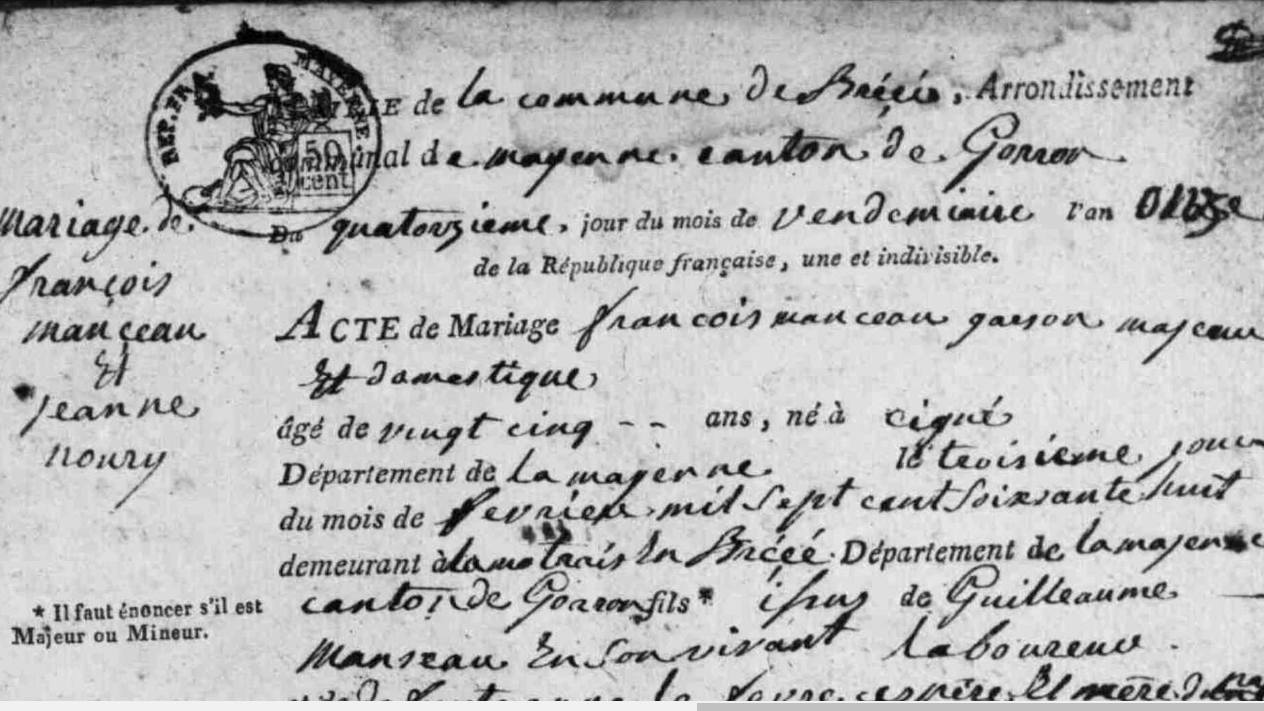 REP. FRA. MAYENNE
50 cent
MAIRIE de la commune de Brécé, Arrondissement
communal de mayenne. canton de Gorron
Mariage de
françois
manceau
Et
jeanne
noury
Du quatorzieme, jour du mois de vendemiaire l'an onze
de la République française, une et indivisible.
ACTE de Mariage francois manceau garson majeur
Et domestique
âgé de vingt cinq -- ans, né à cigné
Département de la mayenne le troisieme jour
du mois de fevrier mil sept cent soixsante huit
demeurant à En Brécé Département de la mayenne
canton de Gorron fils* issus de Guilleaume
manseau En son vivant laboureur
* Il faut énoncer s'il est
Majeur ou Mineur.
et de la pere Et mère